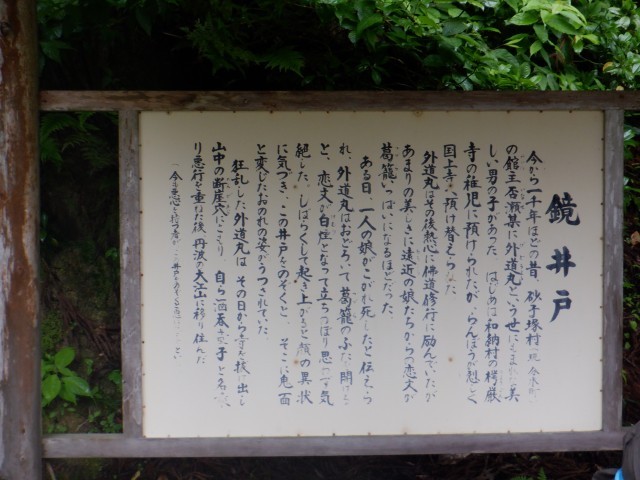 鏡井戸
今から一千年ほどの昔、砂子塚村
の館主否瀬某に外道丸という世にもまれな美
しい男の子があった。はじめは和納村の楞厳
寺の稚児に預けられたが、らんぼうが烈しく
国上寺へ預け替えられた
外道丸はその後熱心に佛道修行に励んでいたが
あまりの美しさに遠近の娘たちからの恋文が
葛籠いっぱいになるほどだった。
ある日、一人の娘がこがれ死したと伝えら
れ、外道丸はおどろいて葛籠のふたを開ける
と、恋文が白煙となって立ちのぼり思わず気
絶した。しばらくして起き上がると顔の異状
に気づき、この井戸をのぞくと、そこに鬼面
と変じたおのれの姿がうつされていた
狂乱した外道丸は その日から寺を抜け出し
山中の断崖穴にこもり、自ら酒呑童子と名
り悪行を重ねた後丹波の大江山に移り住んだ